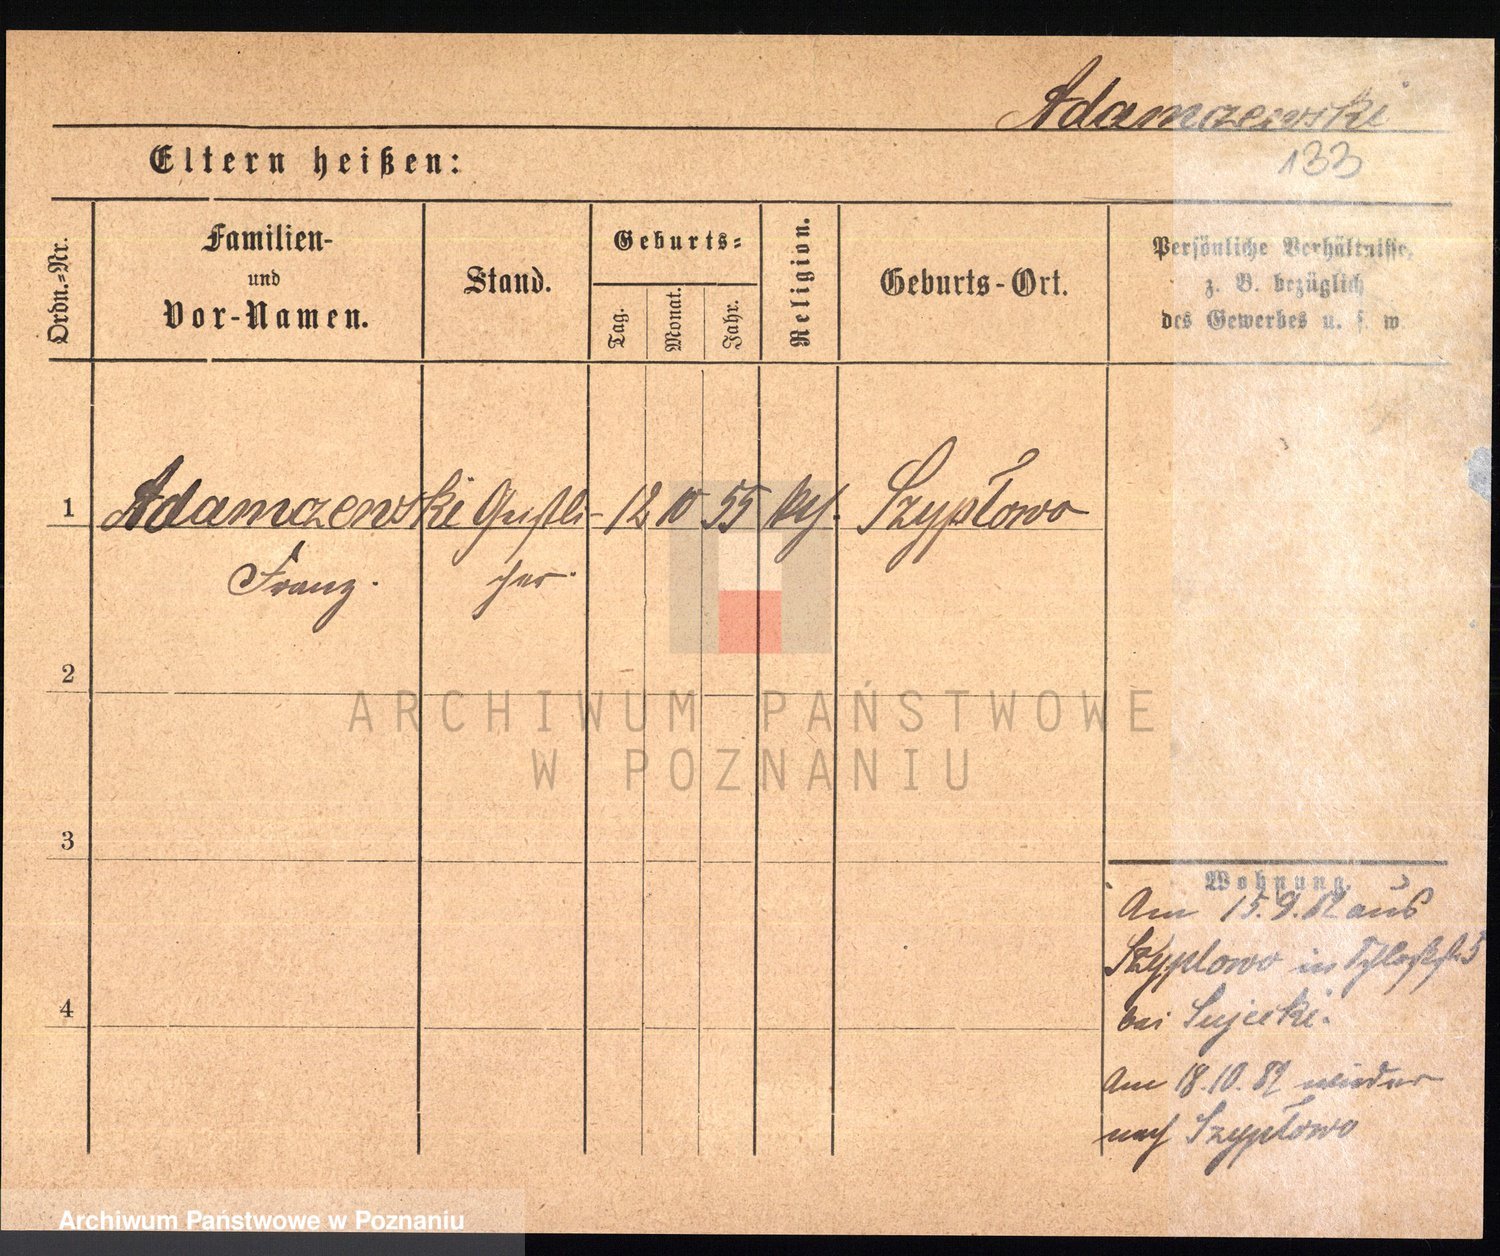 Adamczewski
133
Eltern heißen:
Ordn.=Nr.
Familien-
und
Vor-Namen.
Stand.
Geburts=
Tag.
Monat.
Jahr.
Religion.
Geburts-Ort.
Persönliche Verhältnisse,
z. B. bezüglich
des Gewerbes u. s. w.
1 Adamczewski Geistli- 12 10 55 kth. Szypłowo
Franz. cher.
2
ARCHIWUM PAŃSTWOWE
W POZNANIU
3
Wohnung.
Am 15.9.82 aus
Szyplowo in Schloßstr. 5
bei Sujecki.
4
Am 18.10.82 wieder
nach Szypłowo
Archiwum Państwowe w Poznaniu